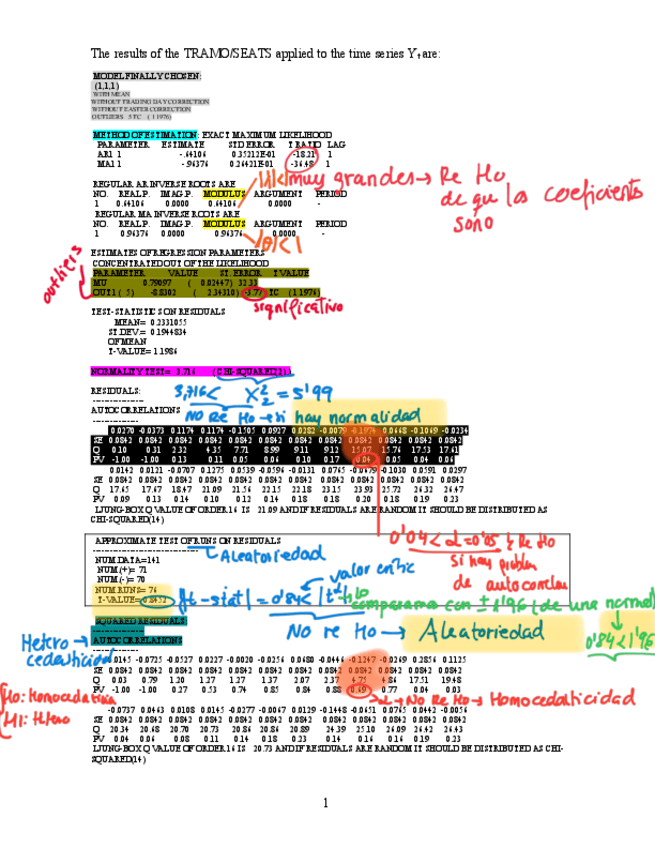 The results of the TRAMO/SEATS applied to the time series Yt are:
MODEL FINALLY CHOSEN:
(1,1,1)
WITH MEAN
WITHOUT TRADING DAY CORRECTION
WITHOUT EASTER CORRECTION
METHOD OF ESTIMATION: EXACT MAXIMUM LIKELIHOOD
PARAMETER ESTIMATE STD ERROR T RATIO LAG
AR1 1 -.64106 0.35212E-01 -18.21 1
MA1 1 -.96376 0.26421E-01 -36.48 1
muy grandes → Re Ho
de que los coeficients
son 0
REGULAR AR INVERSE ROOTS ARE
NO. REAL P. IMAG.P. MODULUS ARGUMENT PERIOD
1 0.64106 0.0000 0.64106 0.0000 -
REGULAR MA INVERSE ROOTS ARE
NO. REAL P. IMAG.P. MODULUS ARGUMENT PERIOD
1 0.96376 0.0000 0.96376 0.0000 -
|θ|<1
outliers
ESTIMATES OF REGRESSION PARAMETERS
CONCENTRATED OUT OF THE LIKELIHOOD
PARAMETER VALUE ST. ERROR T VALUE
MU 0.79097 ( 0.02447) 32.33
OUT1 ( 5) -8.8302 ( 2.34310) -3.77 TC (1 1976)
significativo
TEST-STATISTICS ON RESIDUALS
MEAN= 0.2331055
ST.DEV.= 0.1944834
OF MEAN
T-VALUE= 1.1986
NORMALITY TEST= 3.716 (CHI-SQUARED(2))
3,716 < X²₂ = 5'99
NO Re Ho → si hay normalidad
RESIDUALS:
AUTOCORRELATIONS
0.0270 -0.0373 0.1174 0.1174 -0.1505 0.0927 0.0282 -0.0079 -0.1974 0.0668 -0.1069 -0.0234
SE 0.0842 0.0842 0.0842 0.0842 0.0842 0.0842 0.0842 0.0842 0.0842 0.0842 0.0842 0.0842
Q 0.10 0.31 2.32 4.35 7.71 8.99 9.11 9.12 15.07 15.76 17.53 17.61
PV -1.00 -1.00 0.13 0.11 0.05 0.06 0.10 0.17 0.04 0.05 0.04 0.06
0.0142 0.0121 -0.0707 0.1275 0.0539 -0.0596 -0.0131 0.0765 -0.0679 -0.1030 0.0591 0.0297
SE 0.0842 0.0842 0.0842 0.0842 0.0842 0.0842 0.0842 0.0842 0.0842 0.0842 0.0842 0.0842
Q 17.65 17.67 18.47 21.09 21.56 22.15 22.18 23.15 23.93 25.72 26.32 26.47
PV 0.09 0.13 0.14 0.10 0.12 0.14 0.18 0.18 0.20 0.18 0.19 0.23
LJUNG-BOX Q VALUE OF ORDER 16 IS 21.09 AND IF RESIDUALS ARE RANDOM IT SHOULD BE DISTRIBUTED AS
CHI-SQUARED(14)
0'04 < α=0'05 } Re Ho
si hay problem
de autocorrelac
APPROXIMATE TEST OF RUNS ON RESIDUALS
Aleatoriedad
NUM.DATA=141
NUM.(+)= 71
NUM.(-)= 70
NUM.RUNS= 76
T-VALUE= 0.8452
valor critic
comparamos con ±1'96 (de una normal)
NO re Ho → Aleatoriedad
0'84<1'96
SQUARED RESIDUALS:
AUTOCORRELATIONS
Hetero
cedasticidad
0.0145 -0.0725 -0.0527 0.0227 -0.0020 -0.0256 0.0680 -0.0446 -0.1247 -0.0269 0.2856 0.1125
SE 0.0842 0.0842 0.0842 0.0842 0.0842 0.0842 0.0842 0.0842 0.0842 0.0842 0.0842 0.0842
Q 0.03 0.79 1.20 1.27 1.27 1.37 2.07 2.37 4.75 4.86 17.51 19.48
PV -1.00 -1.00 0.27 0.53 0.74 0.85 0.84 0.88 0.69 0.77 0.04 0.03
>α → No Re Ho → Homocedasticidad
-0.0737 0.0463 0.0108 0.0145 -0.0277 -0.0067 0.0129 -0.1448 -0.0651 0.0765 0.0442 -0.0056
SE 0.0842 0.0842 0.0842 0.0842 0.0842 0.0842 0.0842 0.0842 0.0842 0.0842 0.0842 0.0842
Q 20.34 20.68 20.70 20.73 20.86 20.86 20.89 24.39 25.10 26.09 26.42 26.43
PV 0.04 0.06 0.08 0.11 0.14 0.18 0.23 0.14 0.16 0.16 0.19 0.23
LJUNG-BOX Q VALUE OF ORDER 16 IS 20.73 AND IF RESIDUALS ARE RANDOM IT SHOULD BE DISTRIBUTED AS CHI-
SQUARED(14)
1